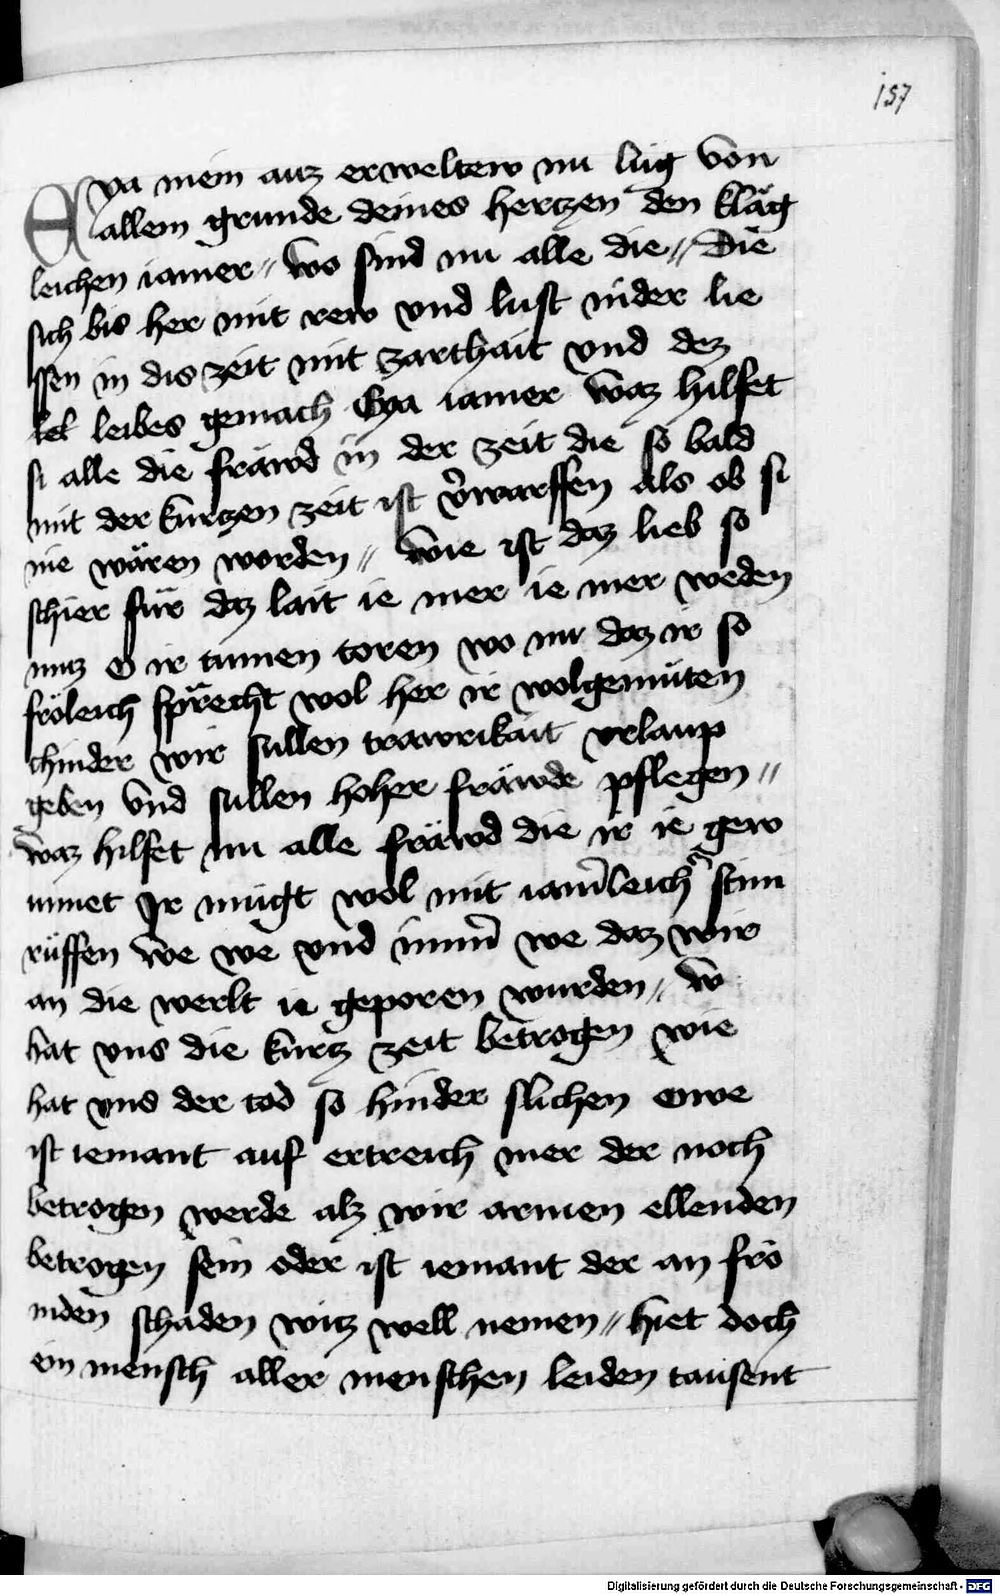 157
Eya mein auz erweltew nu lůg von
allem grunde deines hertzen den kläg
leichen iamer // wo sind nu alle die // Die
sich bis her mit rew vnd lust nider lie
ssen in dis zeit mit zarthait vnd dez
leibes gemach Eya iamer waz hilfet
si alle die fräwd in der zeit die so bald
mit der kurtzen zeit ist v̓warffen als ob si
nie wären worden // wie ist daz lieb so
schier für daz lait ie mer ie mer weden
muz O ir tumen toren wo nu daz ir so
fröleich sprächt wol her ir wolgemüten
chinder wir sullen trawrikait vrlaup
geben vnd sullen hoher fräwde pflegen //
waz hilfet nu alle fräwd die ir ie gew
unnet Ir mügt wol mit iam̓leich̓ stim
rüffen we we vnd imm̓ we daz wir
an die werlt ie geporen wurden // w
hat vns die kurtz zeit betrogen wie
hat vns der tod so hinder slichen owe
ist iemant auf ertreich mer der noch
betrogen werde alz wir armen ellenden
betrogen sein oder ist iemant der an frö
mden schaden witz well nemen // hiet doch
ein mensch aller menschen leiden tausent
Digitalisierung gefördert durch die Deutsche Forschungsgemeinschaft - DFG